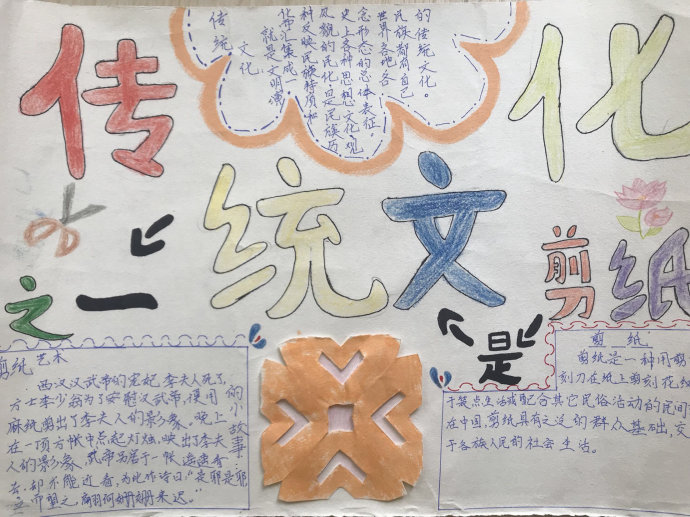 传统文化
之一是剪纸
传统文化
就是文明演
化而汇集成一
种反映民族特质和
风貌的民化是民族历
史上各种思想文化、观
念形态的总体表征，
世界各地各
民族都有自己
的传统文化。
剪纸艺术
的小故事…
西汉汉武帝的宠妃李夫人死了，
方士李少翁为了安慰汉武帝，便用
麻纸剪出了李夫人的影象。晚上
在一顶方帐中点起灯烛，映出了李夫
人的影象，武帝另居于一帐遥遥看
去，却不能近看，为此咋诗曰“是耶是耶
立而望之，翩何姗姗来迟。”
剪纸
剪纸是一种用剪
刻刀在纸上剪刻花纹
于装点生活或配合其它民俗活动的民间
在中国，剪纸具有广泛的群众基础，交
于各族人民的社会生活。